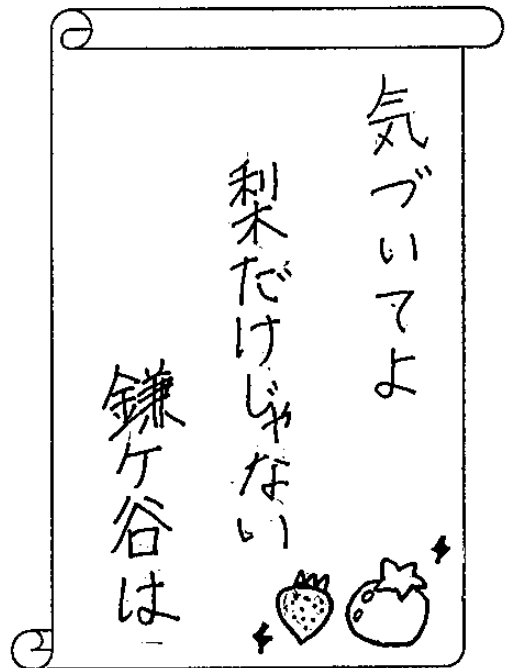 気づいてよ
梨だけじゃない
鎌ケ谷は